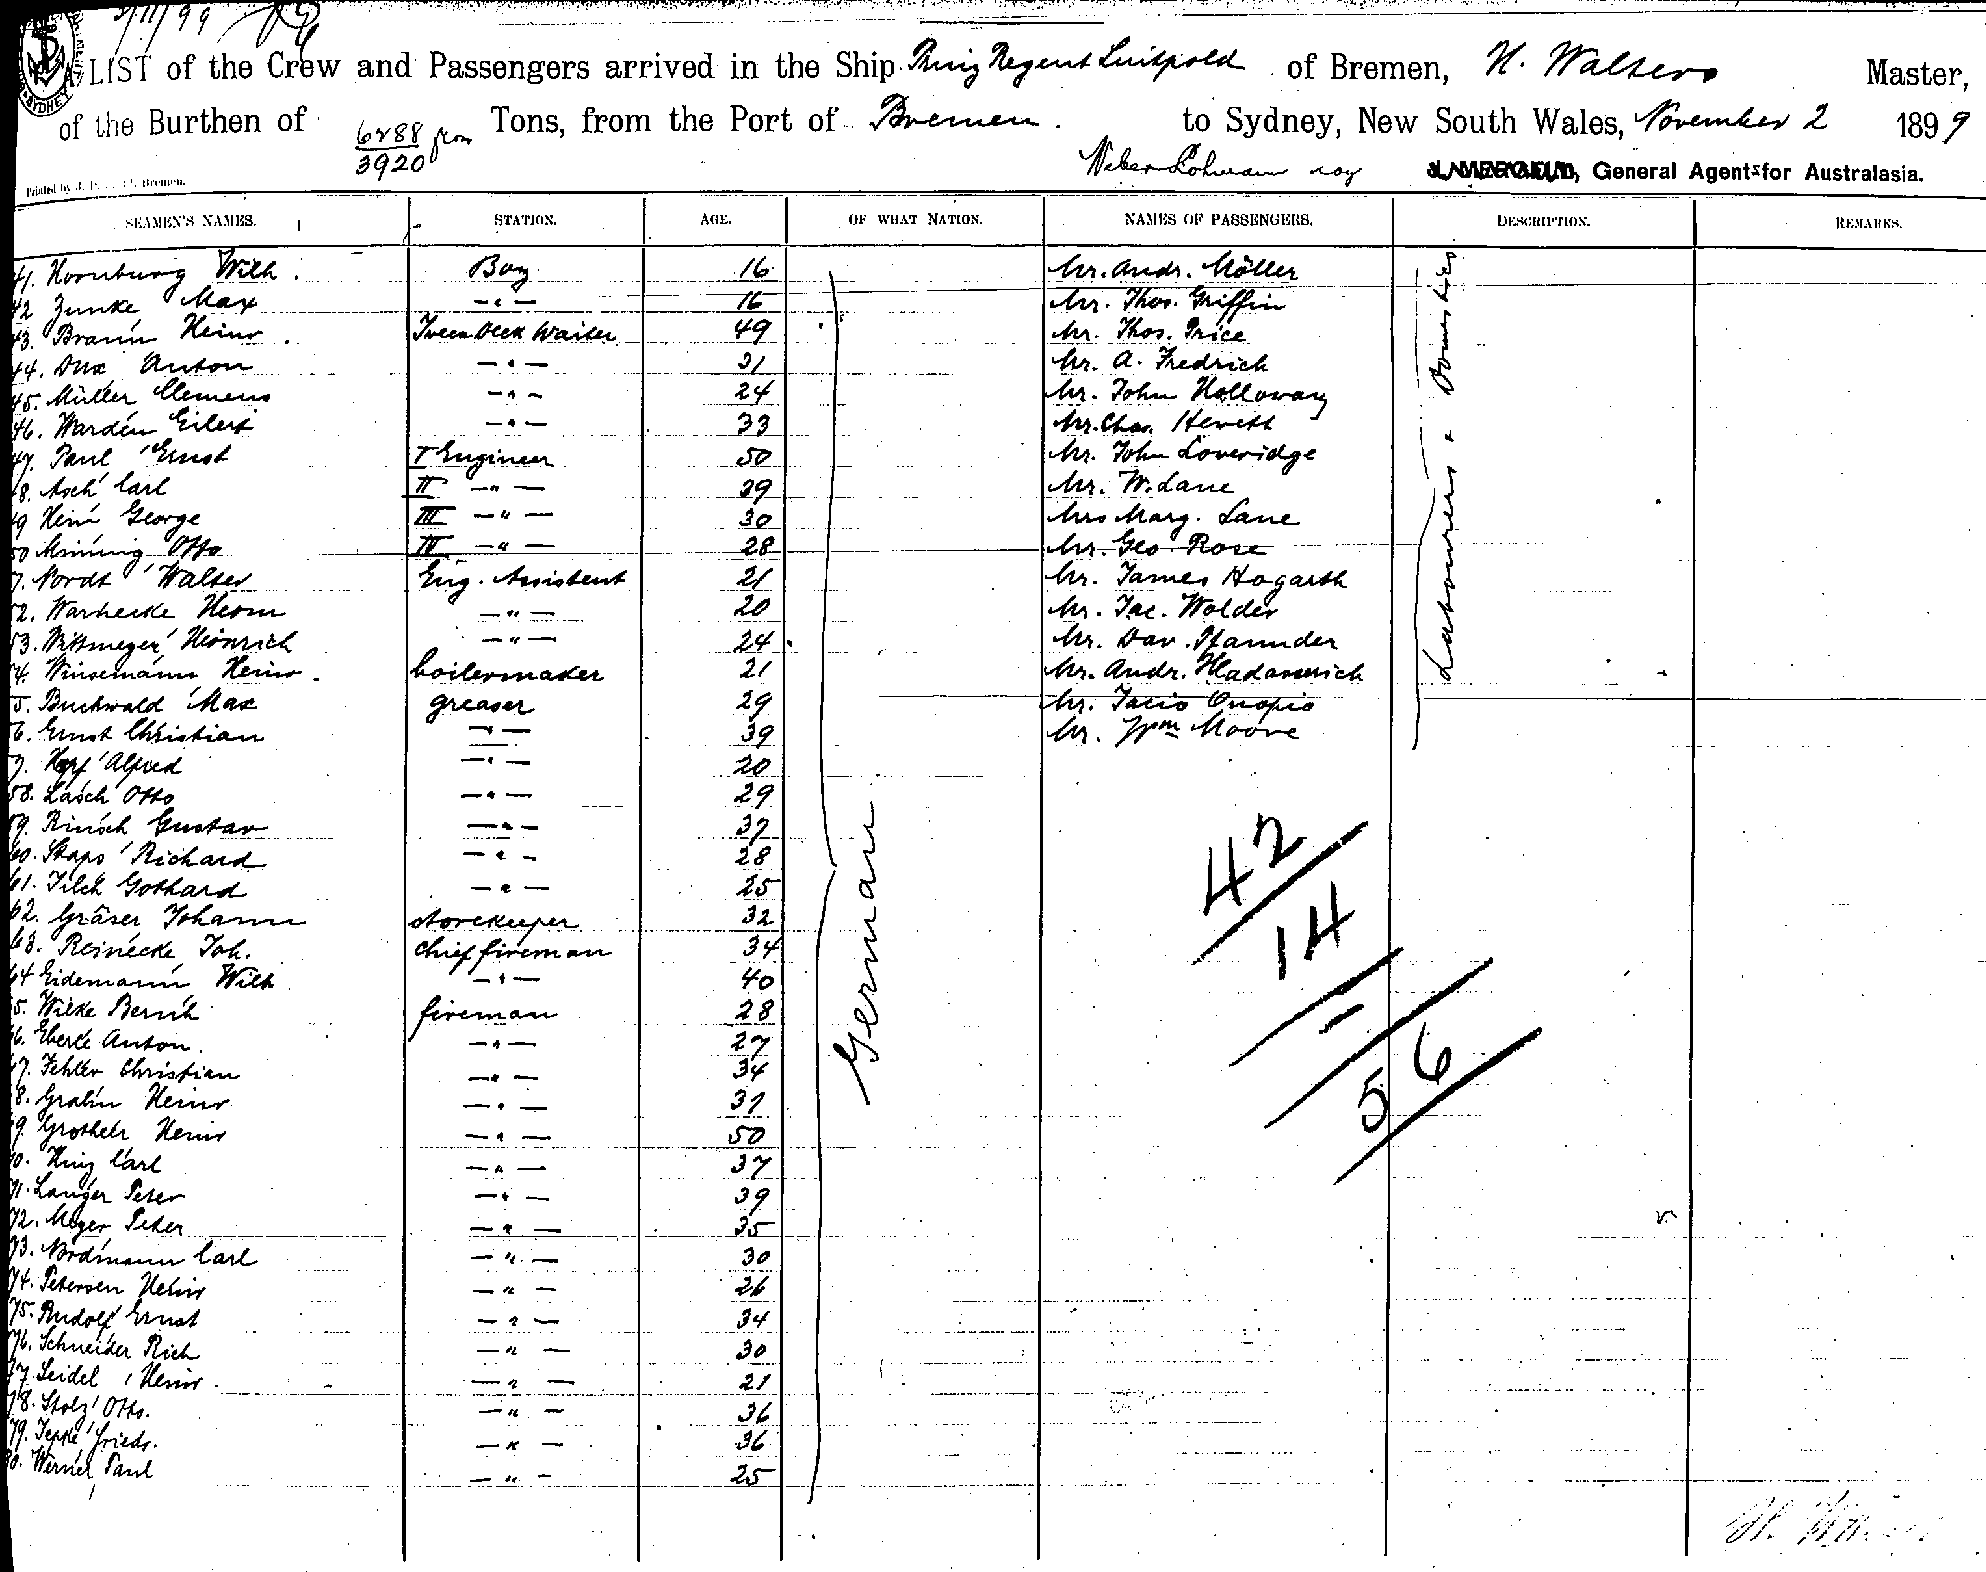 2/11/99
SYDNEY
LIST of the Crew and Passengers arrived in the Ship Prinz Regent Luitpold of Bremen, H. Walters Master,
of the Burthen of 6288 3920 Tons, from the Port of Bremen. to Sydney, New South Wales, November 2 1899
General Agents for Australasia.
Printed by Bremen.
SEAMEN'S NAMES. STATION. AGE. OF WHAT NATION. NAMES OF PASSENGERS. DESCRIPTION. REMARKS.
41. Hornburg Wilh. Boy 16 Mr. Andr. Möller
42 Zunke Max —"— 16 Mr. Thos. Griffin
43. Braun Heinr. Tween Deck Waiter 49 Mr. Thos. Price
44. Dux Anton —"— 31 Mr. A. Fredrich
45. Müller Clemens —"— 24 Mr. John Holloway
46. Warden Eilert —"— 33 Mr. Chas. Hewett
47. Paul Ernst I Engineer 50 Mr. John Loveridge
48. Asch Carl II —"— 39 Mr. W. Lane
49 Hein George III —"— 30 Mrs Marg. Lane
50 Minning Otto IV —"— 28 Mr. Geo. Rose
51. Nordt Walter Eng. Assistent 21 Mr. James Hogarth
52. Warnecke Herm —"— 20 Mr. Jac. Wolder
53. Wittmeyer Heinrich —"— 24 Mr. Dav. Pfannder
54. Winsemann Heinr. boilermaker 21 Mr. Andr. Hadamwich
55. Buchwald Max greaser 29 Mr. Jacio Onopio
56. Ernst Christian —"— 39 Mr. Wm Moore
57. Alfred —"— 20
58. Lasch Otto —"— 29
59. Rinsch Gustav —"— 37
60. Staps Richard —"— 28
61. Tilch Gothard —"— 25
62. Gräser Johann storekeeper 32
63. Reinecke Joh. chief fireman 34
64 Eidemann Wilh —"— 40
65. Wilke Bernh fireman 28
66. Eberle Anton. —"— 27
67. Fehler Christian —"— 34
68. Grahn Heinr —"— 31
69. Grotheer Heinr —"— 50
70. Hinz Carl —"— 37
71. Langer Peter —"— 39
72. Meyer Peter —"— 35
73. Nordmann Carl —"— 30
74. Petersen Heinr —"— 26
75. Rudolf Ernst —"— 34
76. Schneider Rich —"— 30
77. Seidel Heinr. —"— 21
78. Stolz Otto. —"— 36
79. Tepke Friedr. —"— 36
80. Werner Paul —"— 25
German
Labourers & Domestics
42
14
56